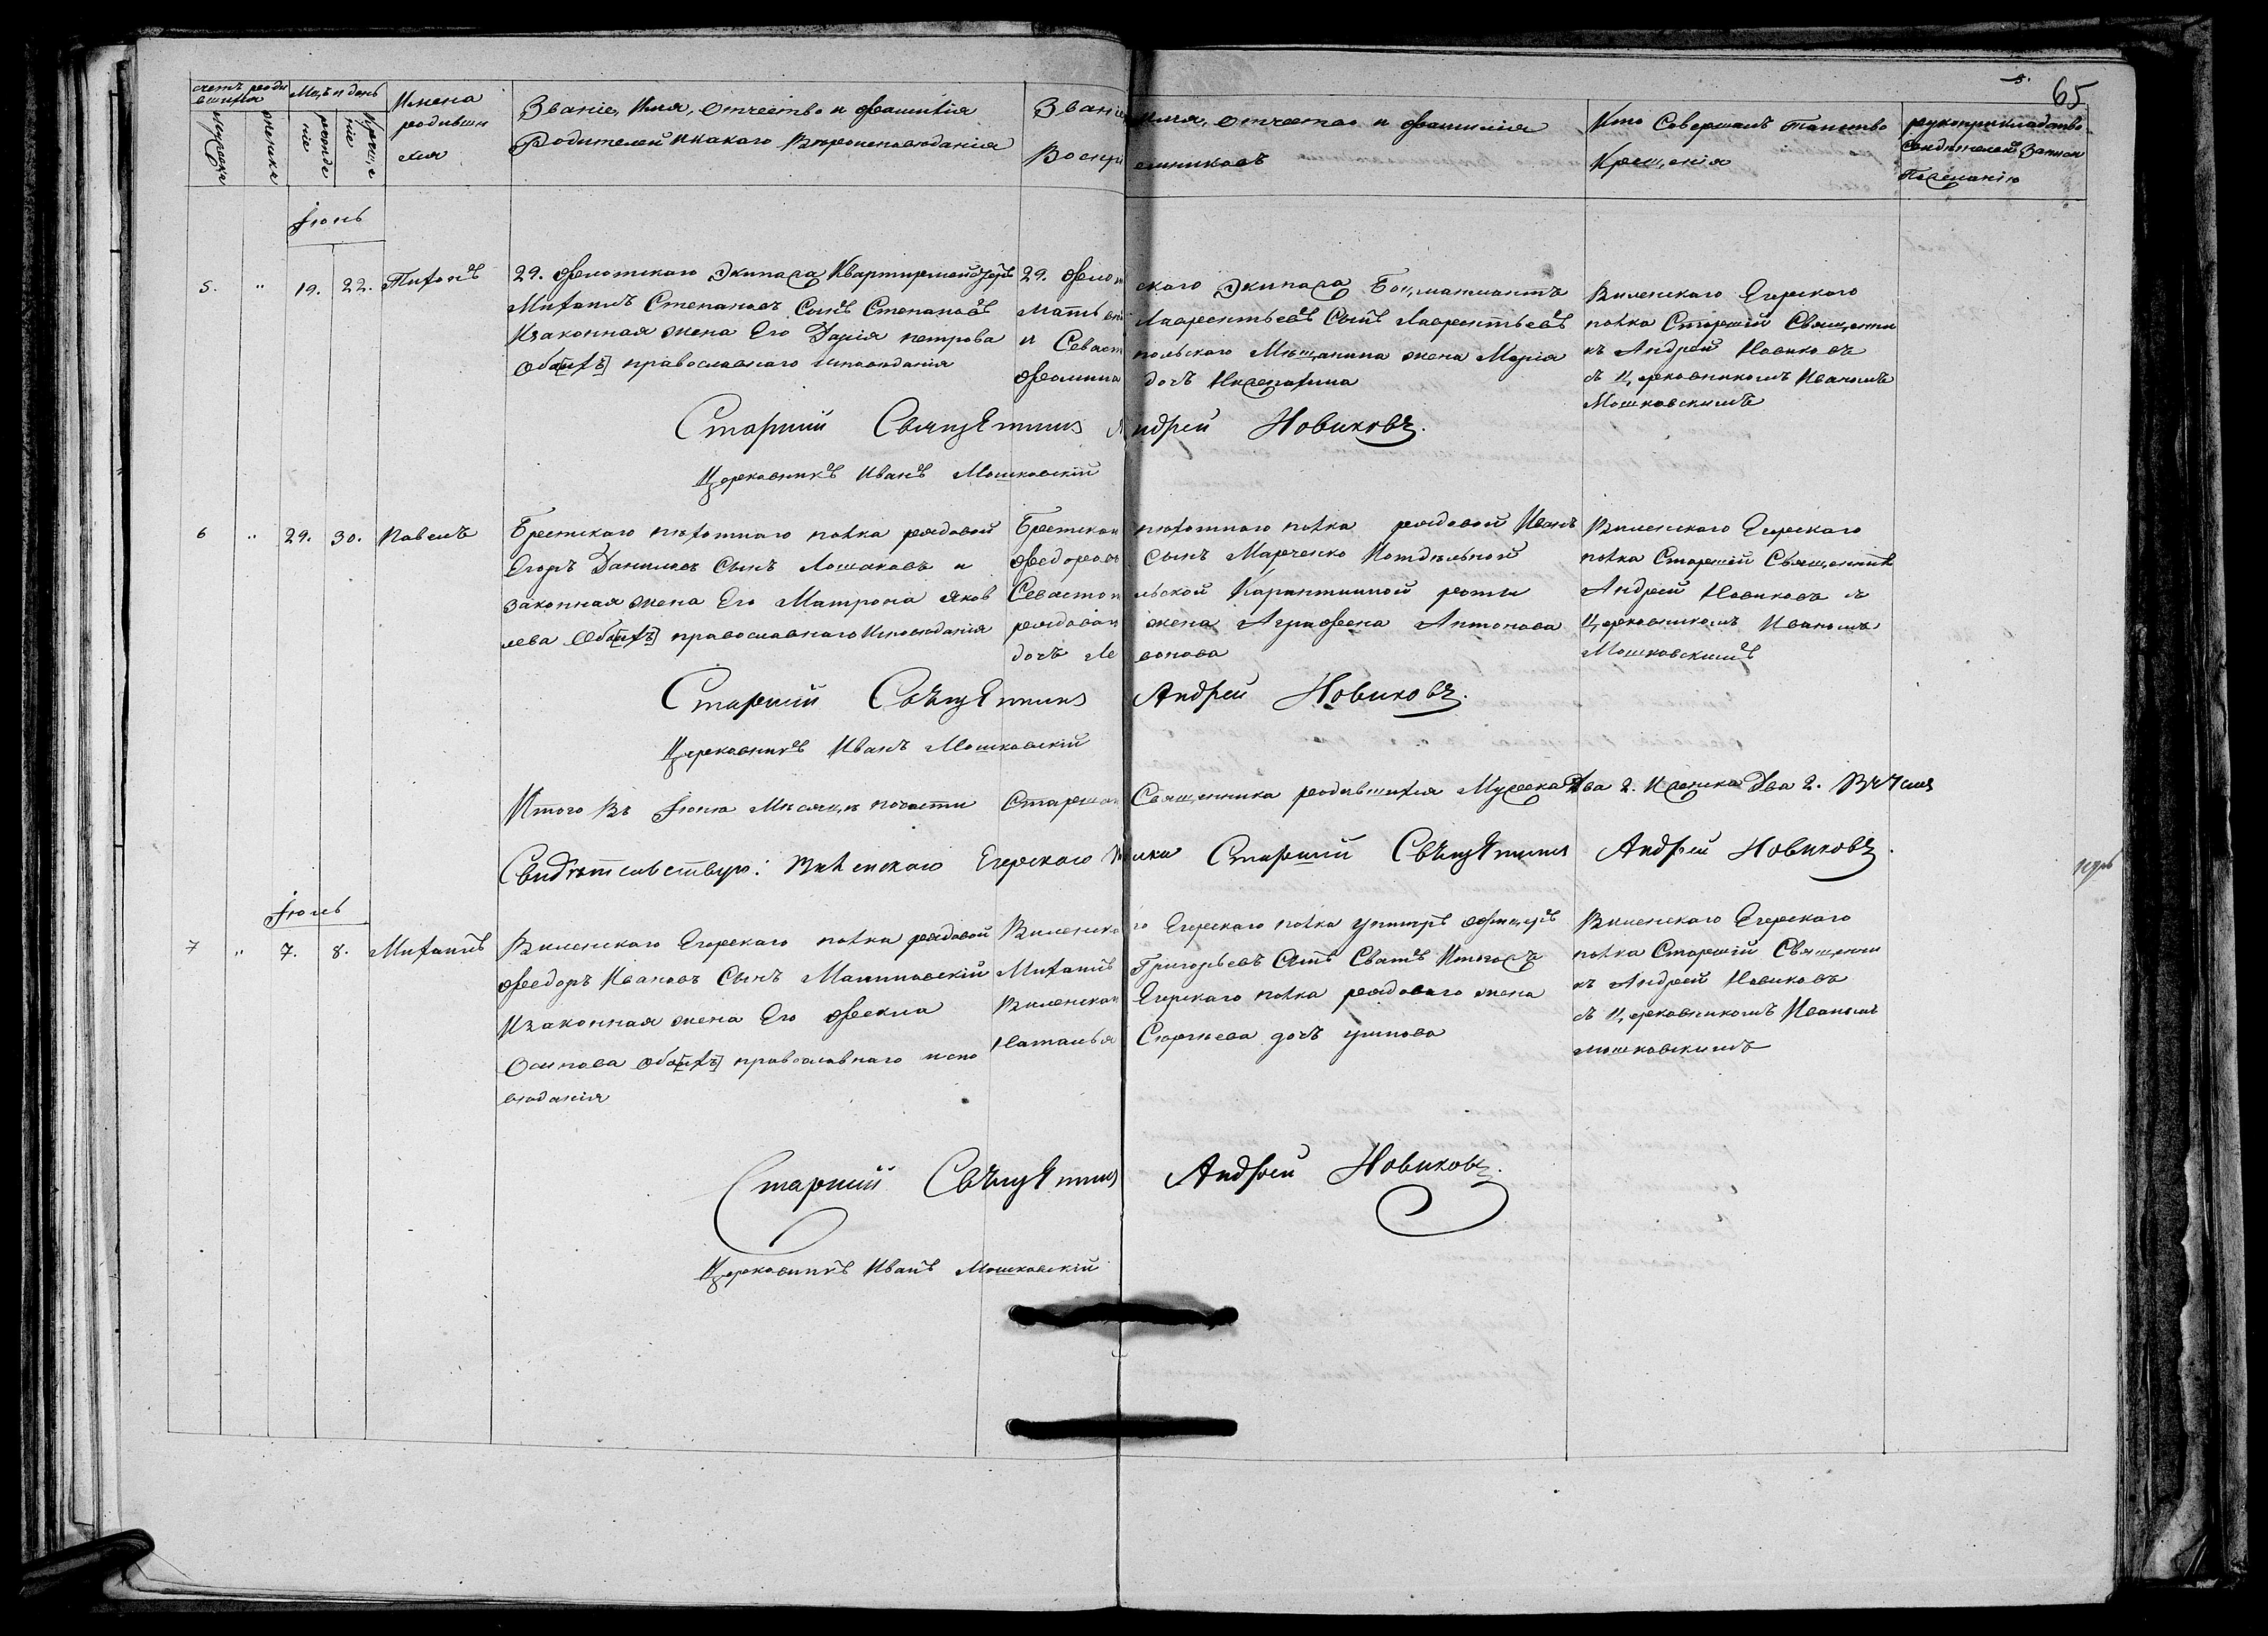 5.
65
счетъ роди
вшихся
Мѣсц. и день
мужеска
женска
рожде
ніе
креще
ніе
Имена
родивши
хся
Званіе, Имя, отчество и фамилія
Родителей и какого Вѣроисповѣданія
Званіе имя, отчество и фамилія
Воспріемниковъ
Кто Совершалъ таинство
Крещенія
рукоприкладство
Свидѣтелей Записи
По желанію
Іюнь
5. " 19. 22. Тихонъ
29. Флотскаго Экипажа Квартирмейстеръ
Михаилъ Степановъ Сынъ Степановъ
И законная жена Его Дарія петрова
Оба [ихъ] православнаго исповѣданія
29. Флотскаго Экипажа Боцманматъ
Лаврентьевъ Сынъ Лаврентьевъ
и Севастопольскаго Мѣщанина жена Марія
дочь
Виленскаго Егерскаго
полка Старшій Священни
къ Андрей Новиковъ
съ церковникомъ Иваномъ
Мошковскимъ
Старшій Священникъ Андрей Новиковъ.
Церковникъ Иванъ Мошковскій
6 " 29. 30. Павелъ
Брестскаго пѣхотнаго полка рядовой
Егоръ Даниловъ Сынъ Лошаковъ и
законная жена Его Матрона Яков
лева Оба [ихъ] православнаго Исповѣданія
Брестскаго пѣхотнаго полка рядовой Иванъ
Федоровъ сынъ Марченко
Севастопольской Карантинной роты
рядоваго жена Агрифена Антонова
дочь Леонова
Виленскаго Егерскаго
полка Старшій Священникъ
Андрей Новиковъ съ
Церковникомъ Иваномъ
Мошковскимъ
Старшій Священникъ Андрей Новиковъ.
Церковникъ Иванъ Мошковскій
Итого Въ Іюнѣ Мѣсяцѣ почасти Старшаго Священника родившихся Мужеска Два 2. Женска Два 2.
Свидѣтельствую: Виленскаго Егерскаго Полка Старшій Священникъ Андрей Новиковъ.
Іюль
7 " 7. 8. Михаилъ
Виленскаго Егерскаго полка рядовой
Федоръ Ивановъ Сынъ Малиновскій
И законная жена Его Фекла
Осипова Оба [ихъ] православнаго испо
вѣданія
Виленскаго Егерскаго полка унтеръ офицеръ
Михаилъ Григорьевъ
Виленскаго Егерскаго полка рядоваго жена
Наталья Сергѣева дочь
Виленскаго Егерскаго
полка Старшій Священни
къ Андрей Новиковъ
съ церковникомъ Иваномъ
мошковскимъ
Старшій Священникъ Андрей Новиковъ.
Церковникъ Иванъ Мошковскій